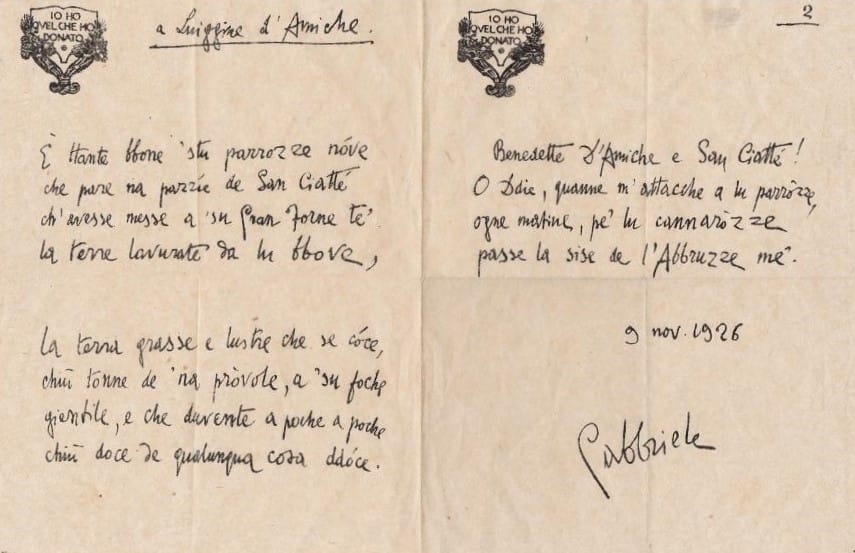 IO HO
QVEL CHE HO
DONATO
a Luiggine d'Amiche.
È ttante bbone 'stu parrozze nóve
che pare na pazzíe de San Ciattè
ch'avesse messe a 'su gran forne tè'
la terre lavurate da lu bbove,
la terra grasse e lustre che se cóce,
chiù tonne de 'na pròvole, a 'su foche
gientile, e che duvente a poche a poche
chiù doce de qualunqua cosa ddóce.
IO HO
QVEL CHE HO
DONATO
2
Benedette D'Amiche e San Ciattè!
O Ddie, quanne m'attacche a lu parròzze,
ogne matine, pe' lu cannaròzze
passe la sise de l'Abbruzze me'.
9 nov. 1926
Gabbriele